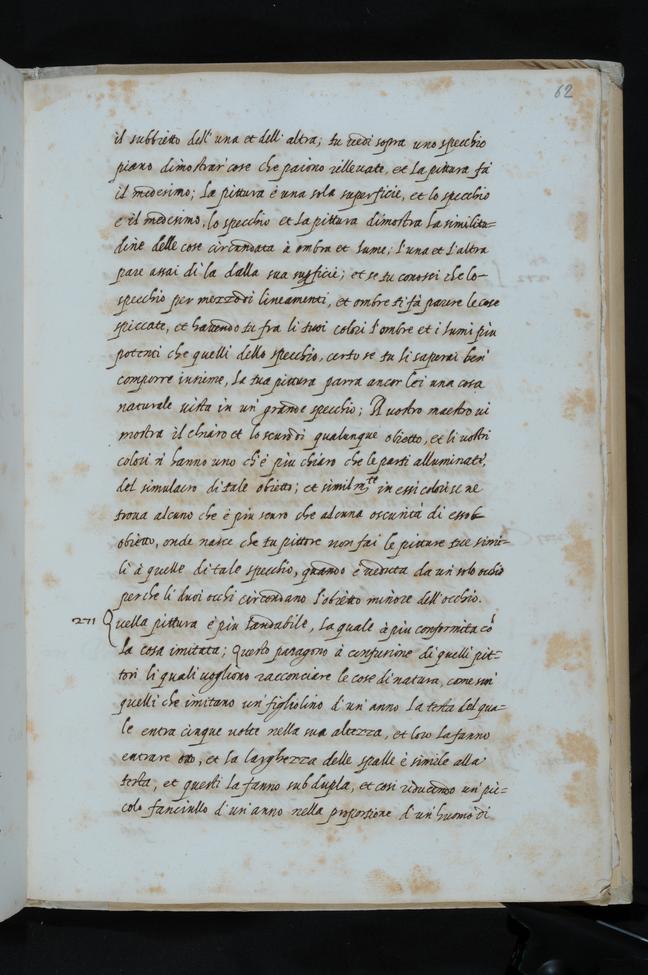 62
il subbietto dell' una et dell' altra; tu vedi sopra uno specchio
piano dimostrar' cose che paiono rilleuate, et la pittura fà
il medesimo; la pittura è una sola superficie, et lo specchio
e il medesimo, lo specchio et la pittura dimostra la similitu=
dine delle cose circondata à ombra et lume; l'una et l'altra
pare assai di la dalla sua supficie; et se tu conosci che lo
specchio per mezzo di lineamenti, et ombre ti fà parere le cose
spiccate, et havendo tu fra li tuoi colori l'ombre et i lumi piu
potenti che quelli dello specchio, certo se tu li saperai ben'
comporre insieme, la tua pittura parra ancor lei una cosa
naturale vista in un' grande specchio; Il vostro maestro vi
mostra il chiaro et lo scuro di qualunque obietto, et li vostri
colori n' hanno uno ch'è più chiaro che le parti alluminate,
del simulacro di tale obietto; et similmte in essi colori se ne
troua alcuno che è più scuro che alcuna oscurità di esso
obietto, onde nasce che tu pittore non fai le pitture tue simi=
li à quelle di tale specchio, quando è veduta da un solo occhio
perche li duoi occhi circondano l'obietto minore dell'occhio.
271 Quella pittura è piu laudabile, la quale à piu conformita cō
la cosa imitata; Questo paragono à confusione di quelli pit=
tori li quali uogliono racconciare le cose di natura, come son'
quelli che imitano un' figliolino d'un' anno la testa del qua=
le entra cinque uolte nella sua altezza, et loro la fanno
entrare otto, et la larghezza delle spalle è simile alla
testa, et questi la fanno subdupla, et cosi riducendo un' pic=
colo fanciullo d'un' anno nella proporzione d'un' huomo di